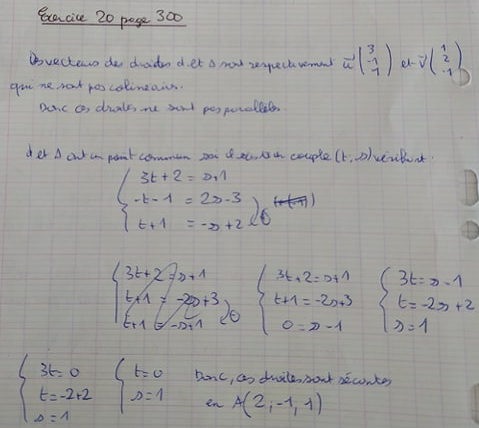 Exercice 20 page 300
Les vecteurs des droites d et Δ sont respectivement u⃗ (3 -1 -1) et v⃗ (1 2 -1)
qui ne sont pas colineairs.
Donc ces droites ne sont pas paralleles
d et Δ ont un point commun ssi il existe un couple (t, s) vérifiant.
{ 3t + 2 = s + 1
-t - 1 = 2s - 3
t + 1 = -s + 2
{ 3t + 2 = s + 1
t + 1 = -2s + 3
t + 1 = -s + 1
{ 3t + 2 = s + 1
t + 1 = -2s + 3
0 = s - 1
{ 3t = s - 1
t = -2s + 2
s = 1
{ 3t = 0
t = -2 + 2
s = 1
{ t = 0
s = 1
Donc, ces droites sont sécantes
en A(2; -1, 1)